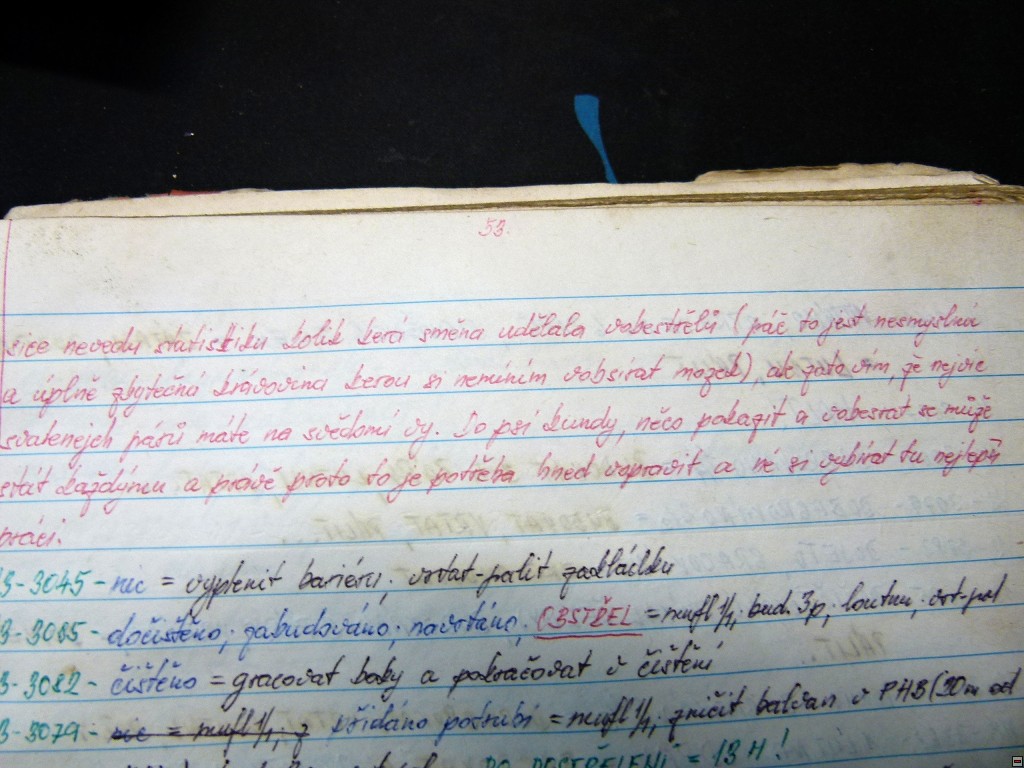 53.
sice nevedu statistiku kolik kerá směna udělala vobestřelů (páč to jest nesmyslná
a úplně zbytečná krávovina kerou si nemíním vobsírat mozek), ale zato vím, že nejvíc
svatenejch pásů máte na svědomí vy. Do psí kundy, něco pokazit a vobesrat se může
stát každýmu a právě proto to je potřeba hned vopravit a né si vybírat tu nejlepší
práci.
B-3045 - nic = vyplenit bariéru; vrtat-palit zakláčku
B-3085 - dočištěno; zabudováno; navrtáno; OBSTŘEL = mufl 1/1; bud. 3p; loutnu, vrt-pal
B-3082 - čištěno = gracovat boky a pokračovat v čištění
B-3079 - nic = mufl 1/1; z přidáno potrubí = mufl 1/1; zničit balvan v PHB (20m od
DO DOSTŘELENÍ = 13 H!